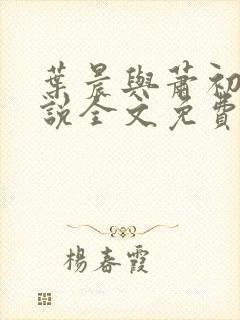 葉晨與蕭初
說全文免費
楊春霞